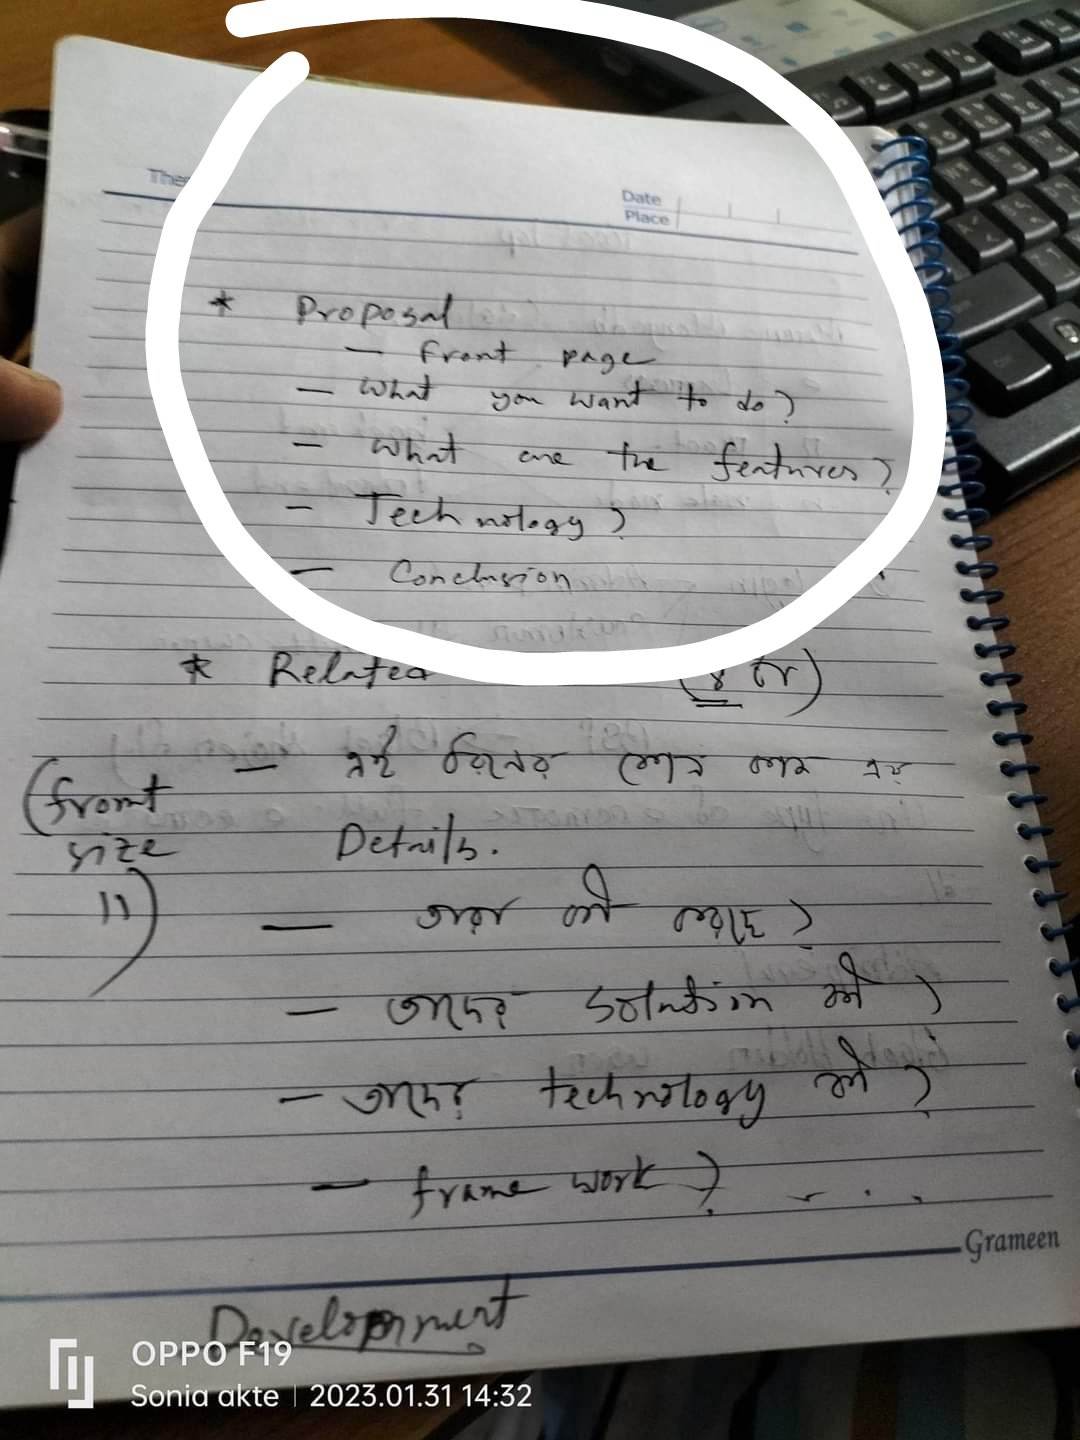 Date
Place
* Proposal
— front page
— What you want to do?
— What are the features?
— Technology?
— Conclusion
* Related (৪ টা)
— এই ধরনের কোন কাজ এর
(front
size
11)
Details.
— তারা কী করছে?
— তাদের solution কী?
— তাদের technology কী?
— frame work?
Grameen
Development
OPPO F19
Sonia akte | 2023.01.31 14:32